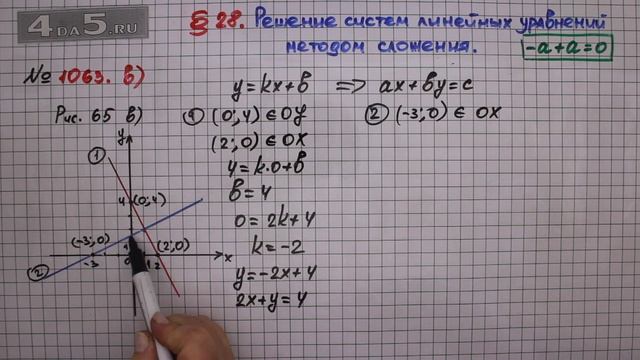 4DA5.RU
§ 28. Решение систем линейных уравнений
методом сложения.
-a+a=0
№ 1063. в)
Рис. 65 в)
y=kx+b => ax+by=c
① (0;4) ∈ OY
(2;0) ∈ OX
y=k·0+b
b=4
0=2k+4
k=-2
y=-2x+4
2x+y=4
② (-3;0) ∈ OX
y
①
4
(0;4)
(-3;0)
(2;0)
1
x
②
-3
0
1
2